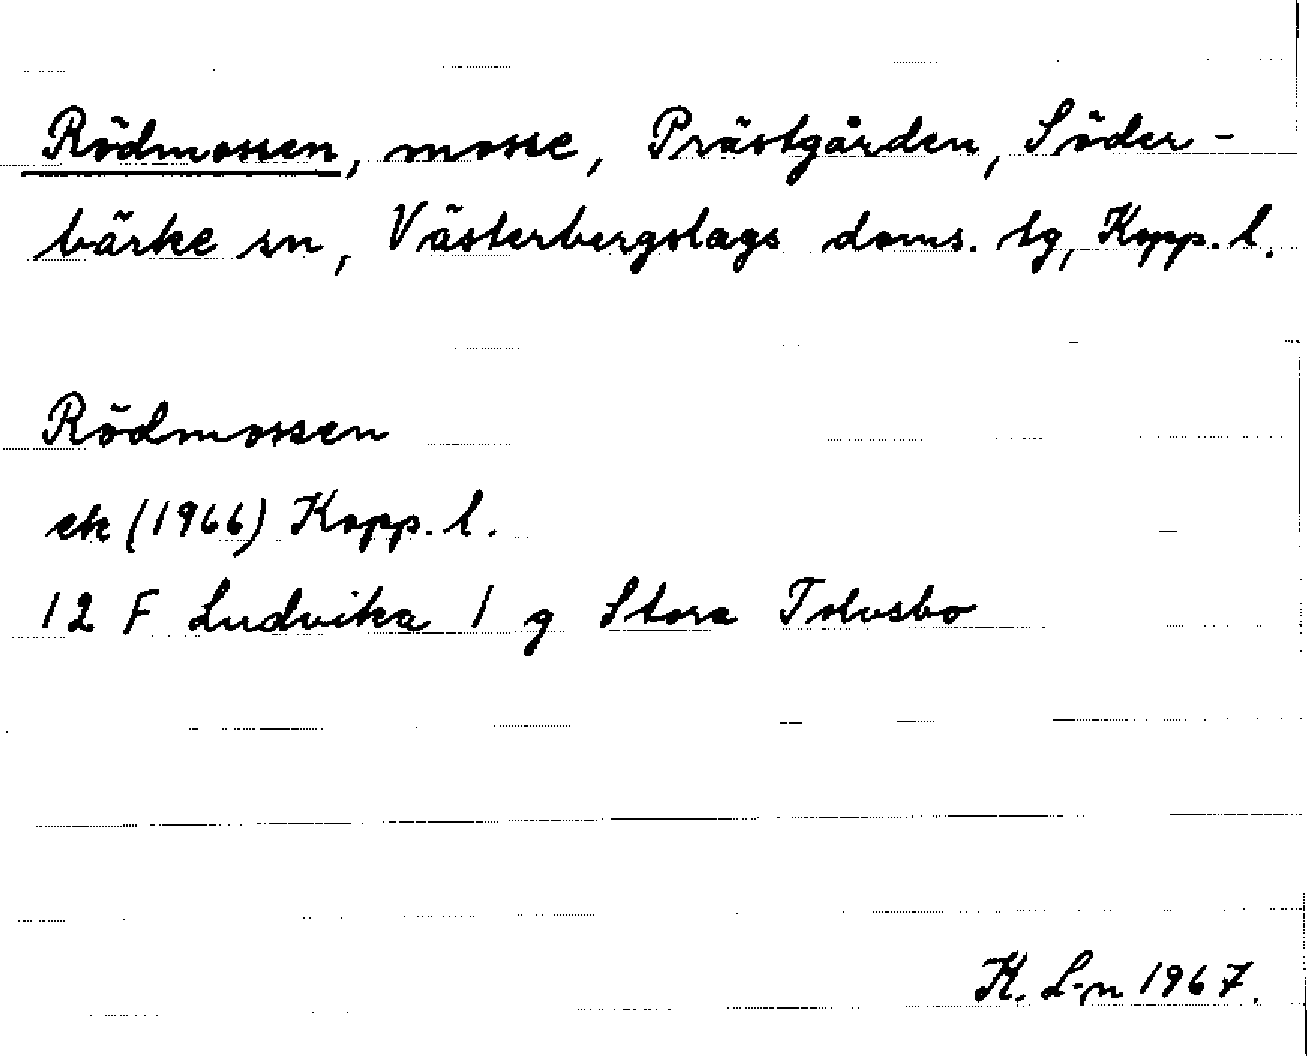 Rödmossen, mosse, Prästgården, Söder-
bärke sn, Västerbergslags doms. tg, Kopp. l.
Rödmossen
ek (1966) Kopp. l.
12 F Ludvika 1 g Stora Tolvsbo
K. L-n 1967.